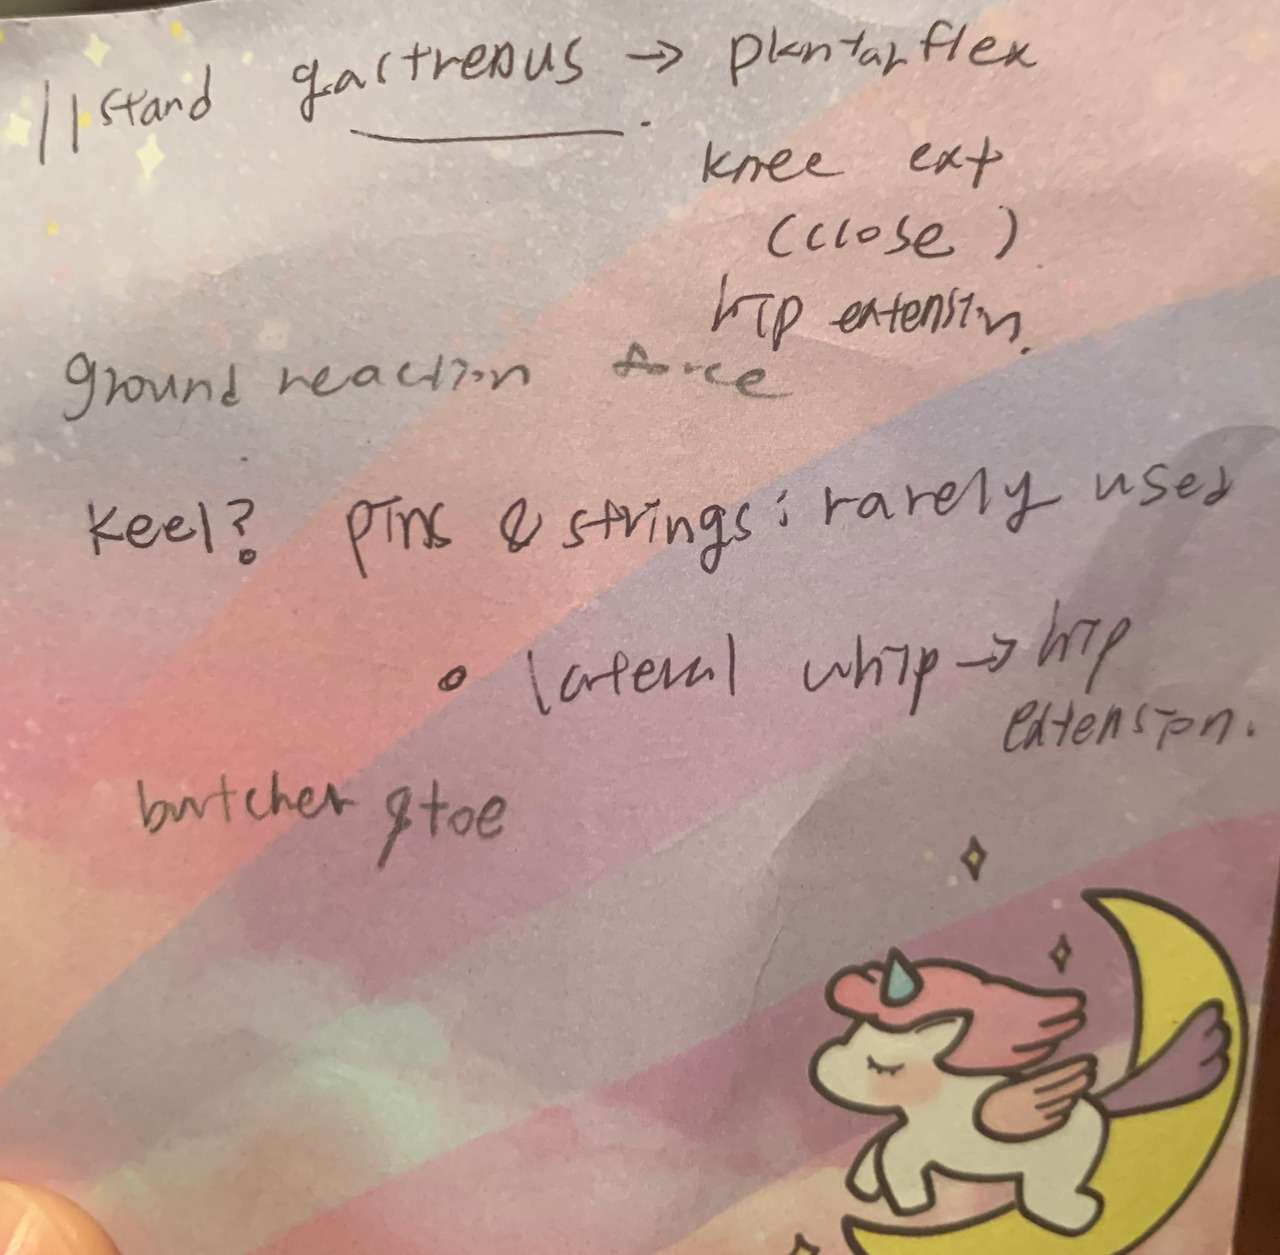 // stand gastrenus → plantarflex
knee ext
(close)
hip extension.
ground reaction force
keel? pins & strings : rarely used
• lateral whip → hip
extension.
butcher toe